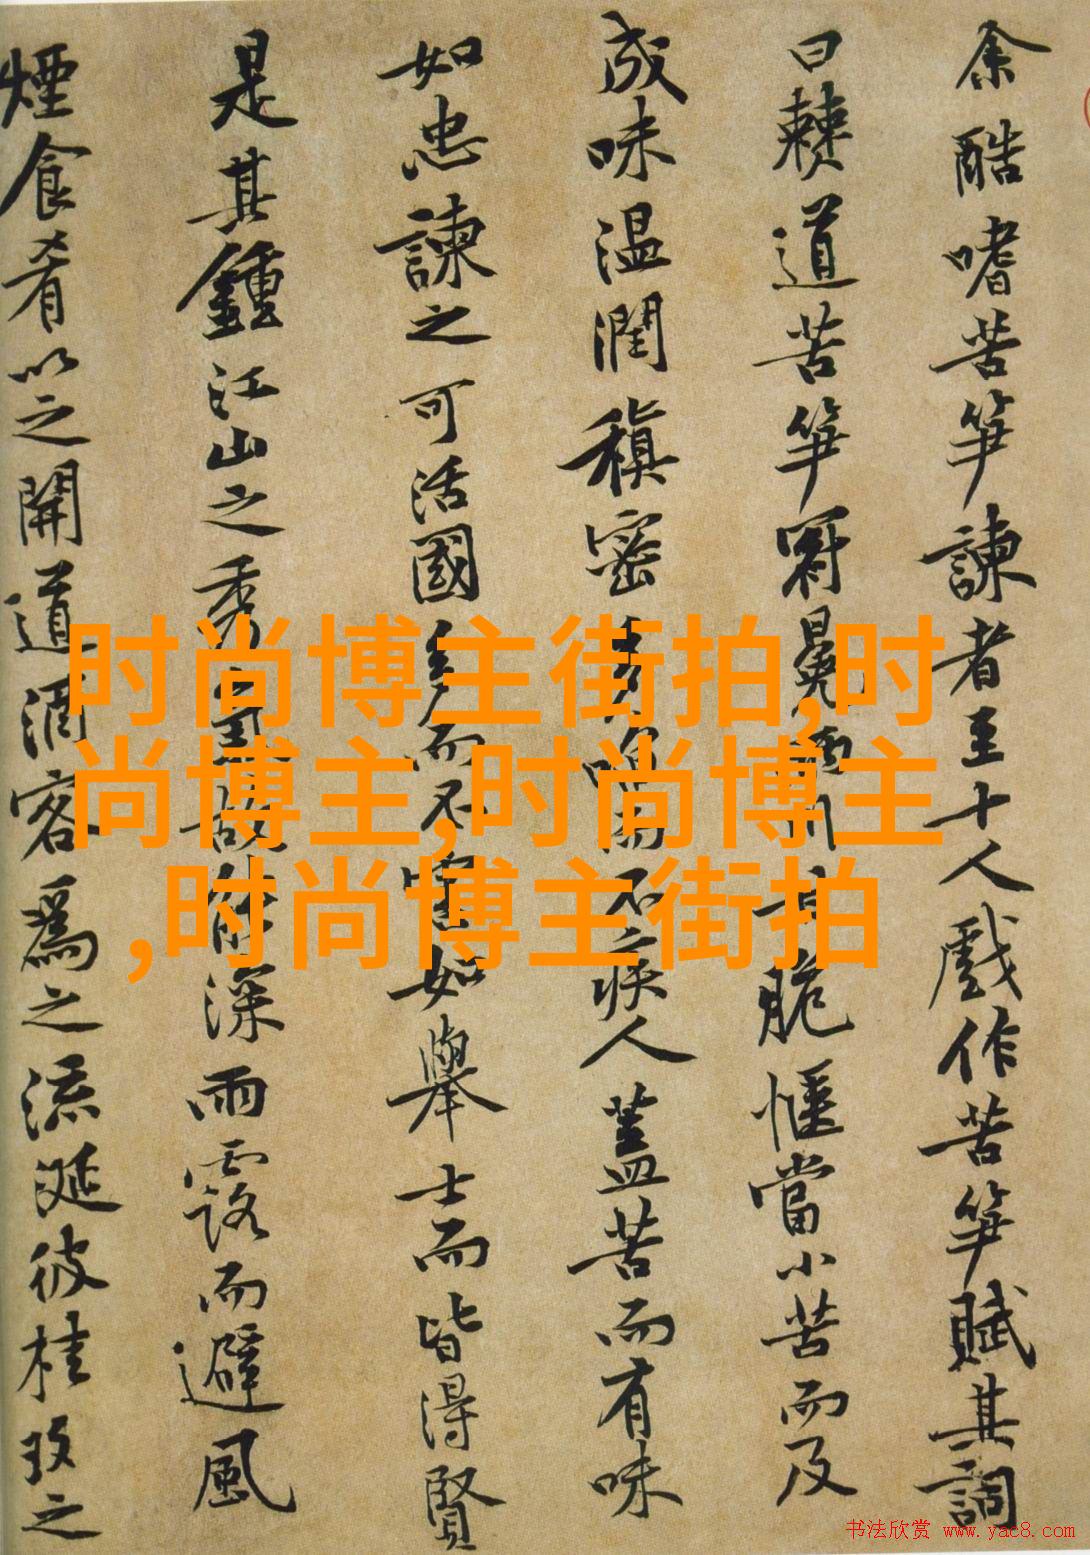 余酷嗜苦笋諫者至十人戲作苦笋賦其詞
曰棘道苦笋冠冕兩川甘脆愜當小苦而及
成味温潤稹密多啗而不疾人蓋苦而有味
如忠諫之可活國多而不害如舉士而皆得賢
是其鍾江山之秀氣故能深雨露而避風
煙食肴以之開道酒客爲之流涎彼桂玫之
时尚博主街拍,时
尚博主,时尚博主
,时尚博主街拍
书法欣赏 www.yac8.com